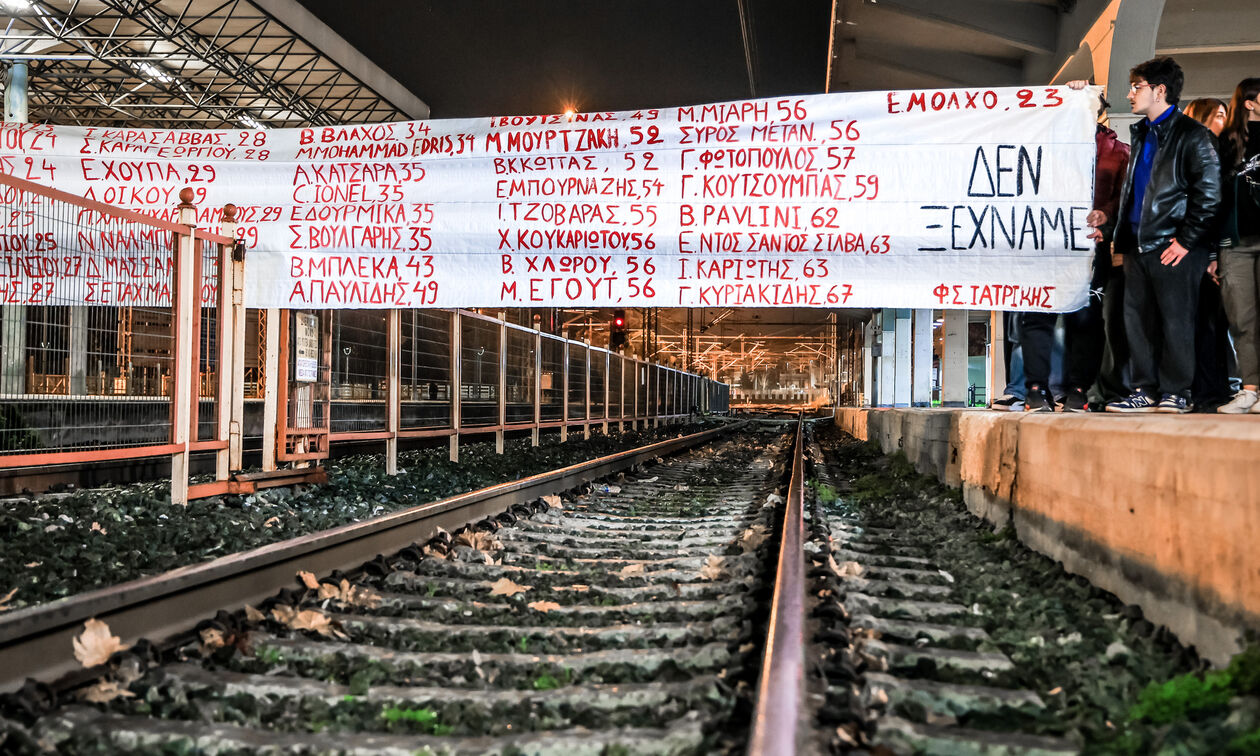 24
Σ. ΚΑΡΑΣΑΒΒΑΣ, 28
Σ. ΚΑΡΑΓΕΩΡΓΙΟΥ, 28
Ε. ΧΟΥΠΑ, 29
29
25
25
27
27
Β. ΒΛΑΧΟΣ, 34
M. MOHAMMAD EDRIS, 34
Α. ΚΑΤΣΑΡΑ, 35
C. IONEL, 35
Ε. ΔΟΥΡΜΙΚΑ, 35
Σ. ΒΟΥΛΓΑΡΗΣ, 35
Β. ΜΠΛΕΚΑ, 43
Α. ΠΑΥΛΙΔΗΣ, 49
Ι. ΒΟΥΤΣΙΝΑΣ, 49
Μ. ΜΟΥΡΤΖΑΚΗ, 52
Β. Κ. ΚΩΤΤΑΣ, 52
Ε. ΜΠΟΥΡΝΑΖΗΣ, 54
Ι. ΤΖΟΒΑΡΑΣ, 55
Χ. ΚΟΥΚΑΡΙΩΤΟΥ, 56
Β. ΧΛΩΡΟΥ, 56
Μ. ΕΓΟΥΤ, 56
Μ. ΜΙΑΡΗ, 56
ΣΥΡΟΣ ΜΕΤΑΝ., 56
Γ. ΦΩΤΟΠΟΥΛΟΣ, 57
Γ. ΚΟΥΤΣΟΥΜΠΑΣ, 59
B. PAVLINI, 62
Ε. ΝΤΟΣ ΣΑΝΤΟΣ ΣΙΛΒΑ, 63
Ι. ΚΑΡΙΩΤΗΣ, 63
Γ. ΚΥΡΙΑΚΙΔΗΣ, 67
Ε. ΜΟΛΧΟ, 23
ΔΕΝ
ΞΕΧΝΑΜΕ
Φ.Σ. ΙΑΤΡΙΚΗΣ